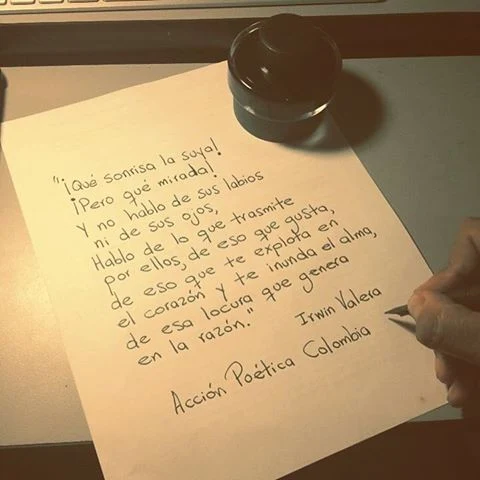 "¡Qué sonrisa la suya!
¡Pero qué mirada!
Y no hablo de sus labios
ni de sus ojos,
Hablo de lo que trasmite
por ellos, de eso que gusta,
de eso que te explota en
el corazón y te inunda el alma,
de esa locura que genera
en la razón."
Irwin Valera
Acción Poética Colombia